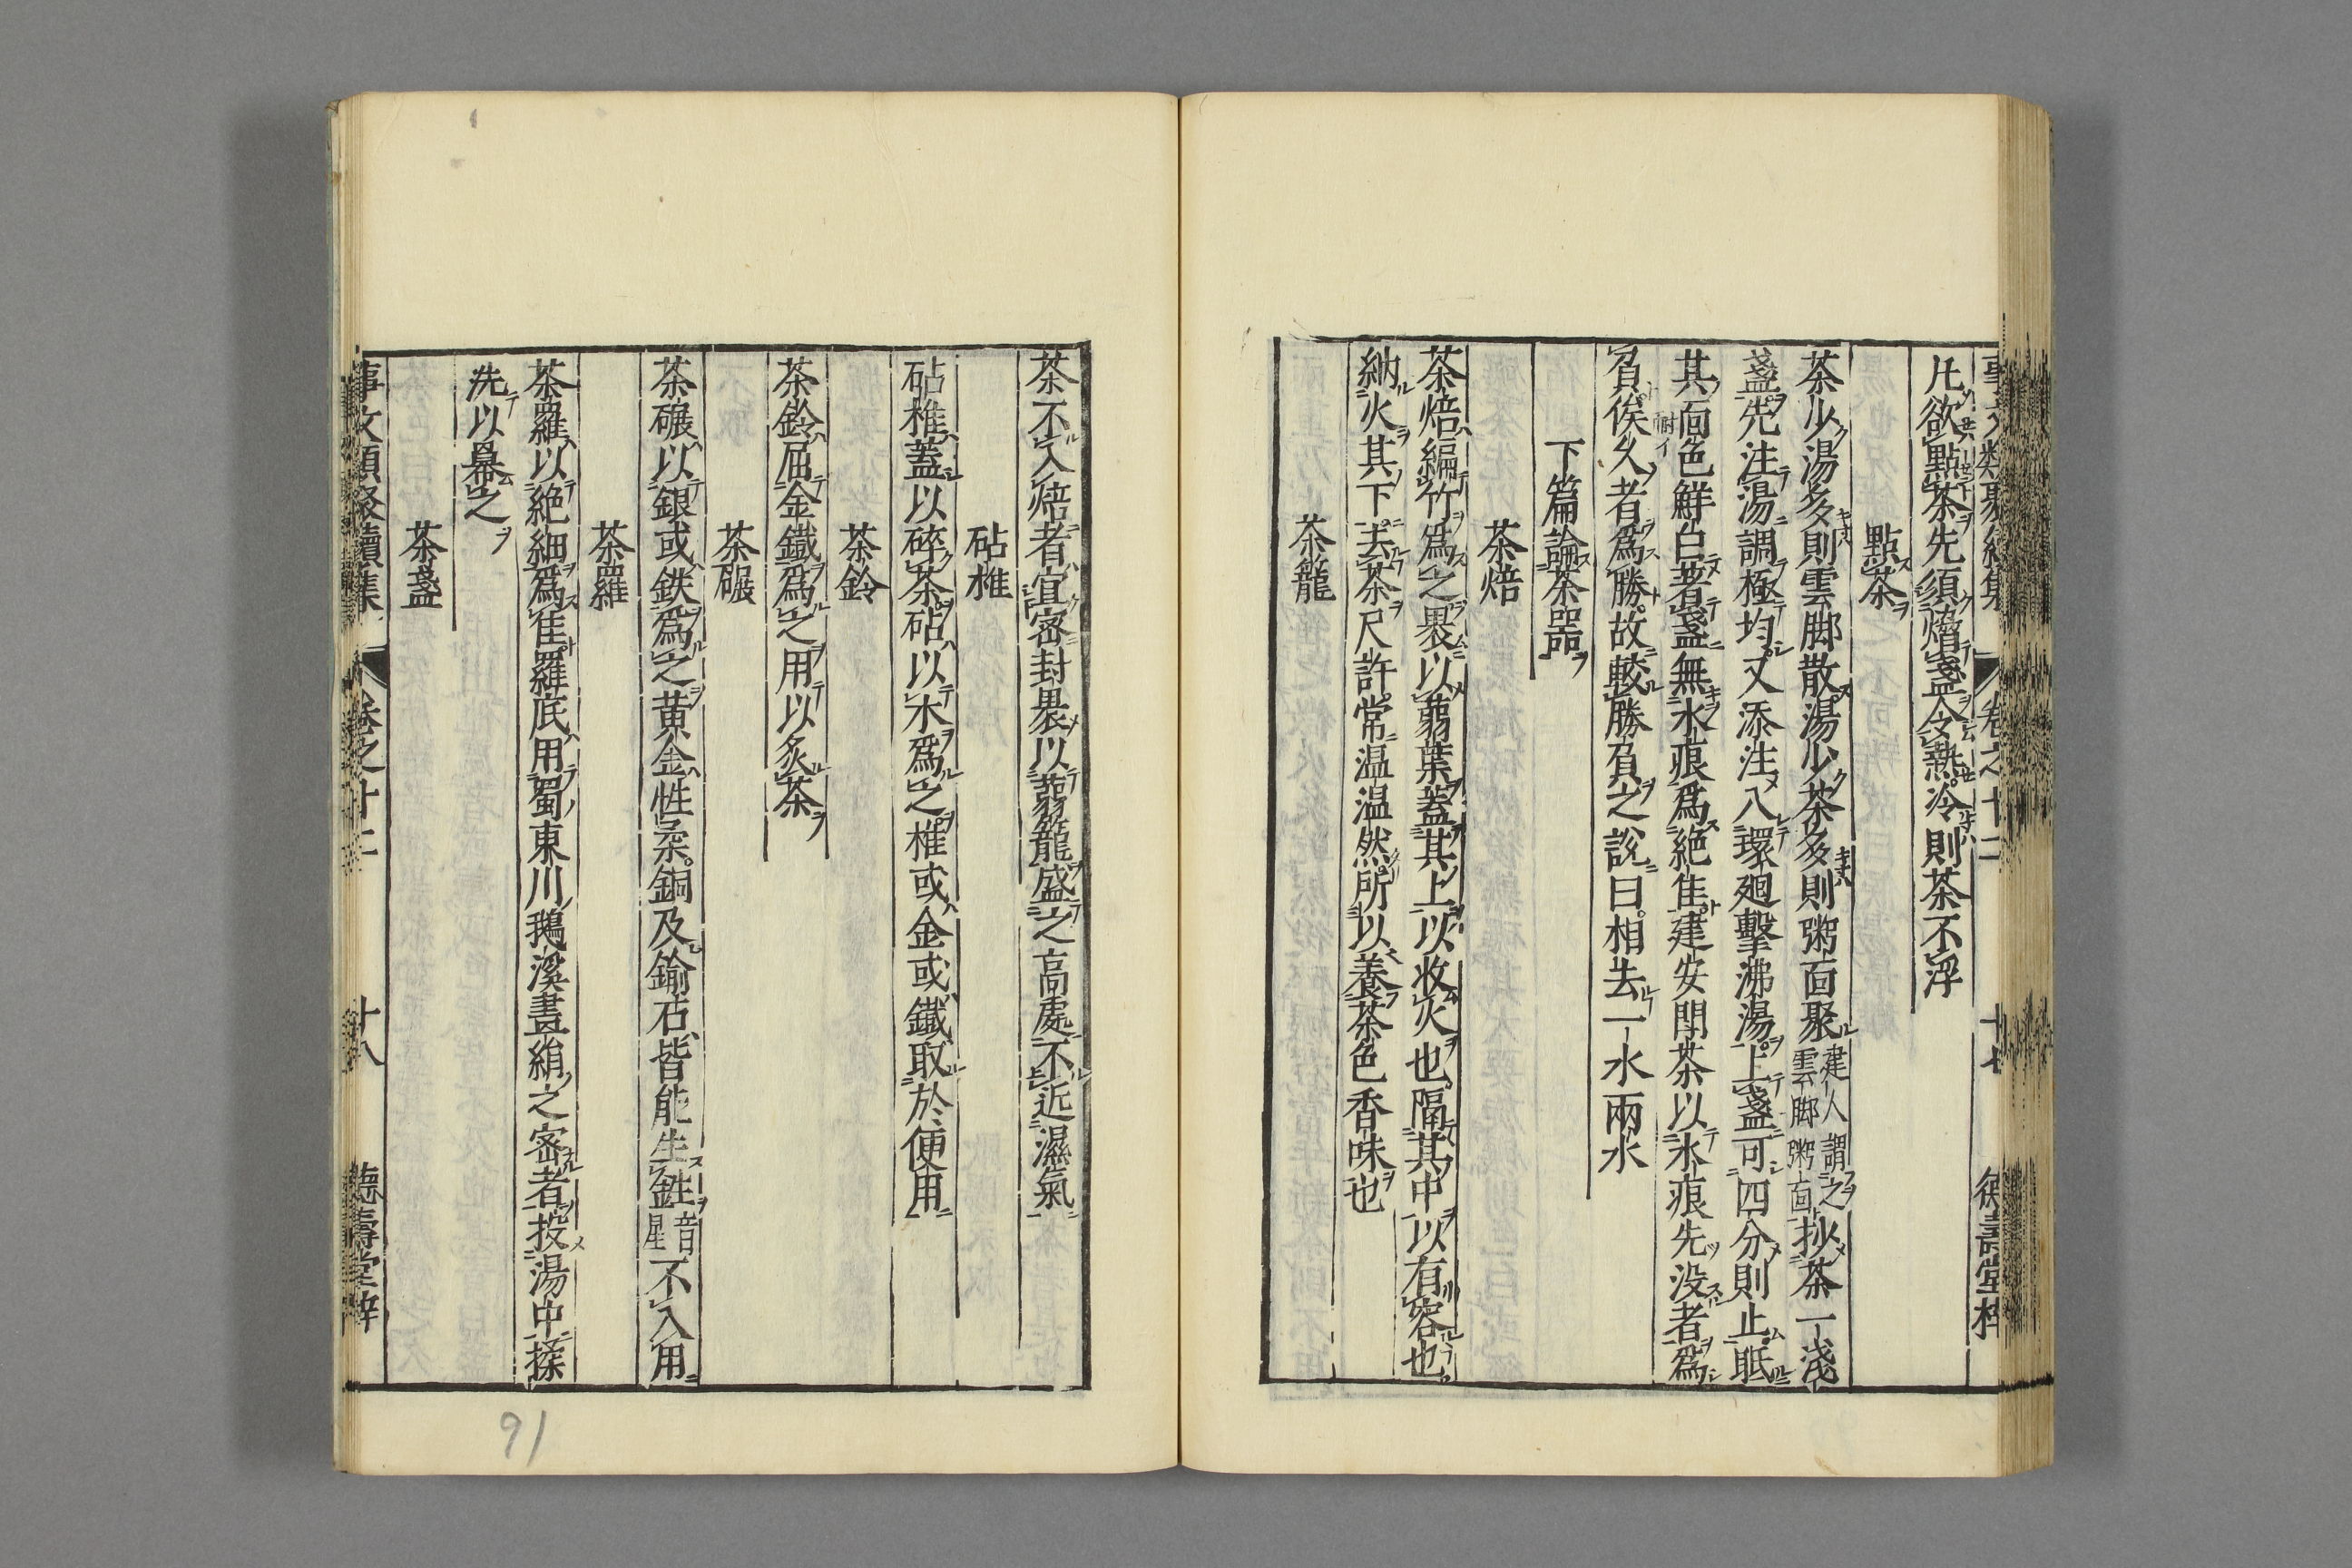 卷之十二
十七
德壽堂梓
凡欲點茶先須熁盞令熱冷則茶不浮
點茶
茶少湯多則雲脚散湯少茶多則粥面聚建人謂之雲脚粥面抄茶一淺
盞先注湯調極均又添注入環廻擊沸湯上盞可四分則止眂
其面色鮮白著盞無水痕爲絶佳建安閗茶以水痕先没者爲
負俟久者爲勝故較勝負之說曰相去一水兩水
耐イ
下篇論茶器
茶焙
茶焙編竹爲之裹以蒻葉蓋其上以收火也隔其中以有容也
納火其下去茶尺許常温温然所以養茶色香味也
茶籠
茶不入焙者宜密封裹以蒻籠盛之高處不近濕氣
砧椎
砧椎蓋以碎茶砧以木爲之椎或金或鐵取於便用
茶鈴
茶鈴屈金鐵爲之用以炙茶
茶碾
茶碾以銀或鉄爲之黄金性柔銅及鍮石皆能生鉎音星不入用
茶羅
茶羅以絶細爲佳羅底用蜀東川鵝溪畫絹之密者投湯中揉
洗以冪之
茶盞
事文類聚續集
卷之十二
十八
德壽堂梓
91